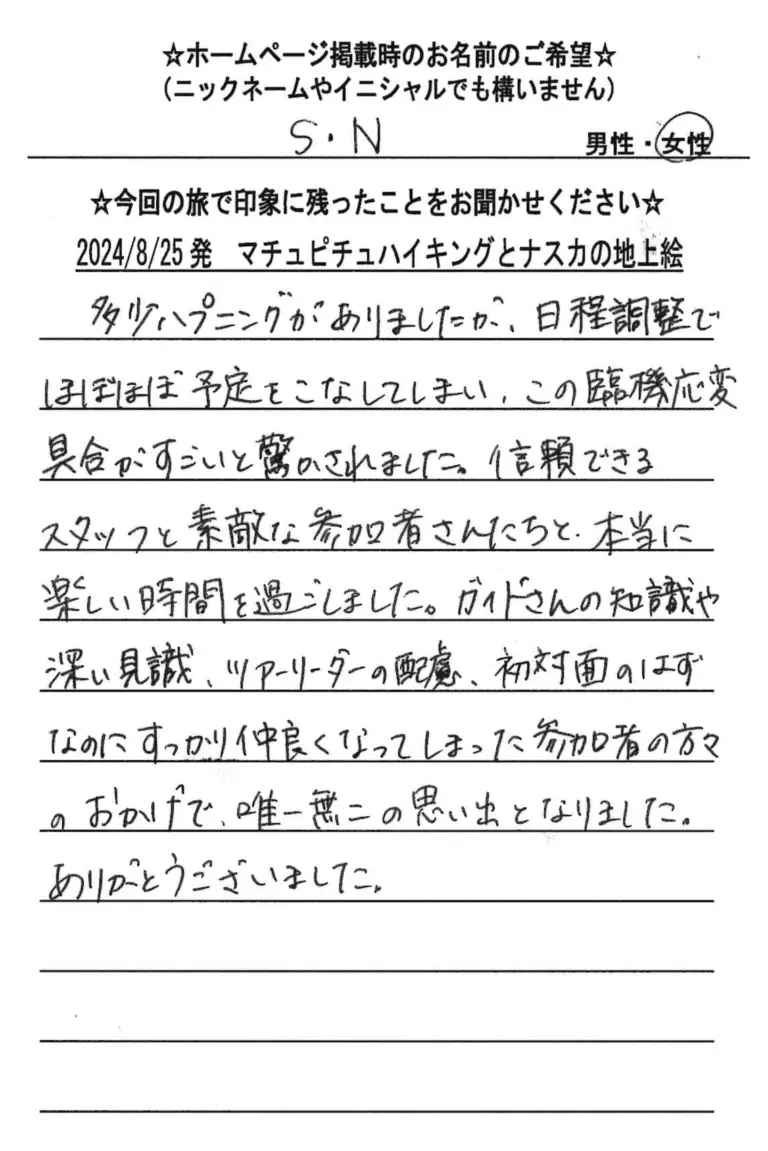 ☆ホームページ掲載時のお名前のご希望☆
（ニックネームやイニシャルでも構いません）
S・N 男性・女性
☆今回の旅で印象に残ったことをお聞かせください☆
2024/8/25発 マチュピチュハイキングとナスカの地上絵
多少ハプニングがありましたが、日程調整で
ほぼほぼ予定をこなしてしまい、この臨機応変
具合がすごいと驚かされました。信頼できる
スタッフと素敵な参加者さんたちと、本当に
楽しい時間を過ごしました。ガイドさんの知識や
深い見識、ツアーリーダーの配慮、初対面のはず
なのにすっかり仲良くなってしまった参加者の方々
のおかげで、唯一無二の思い出となりました。
ありがとうございました。